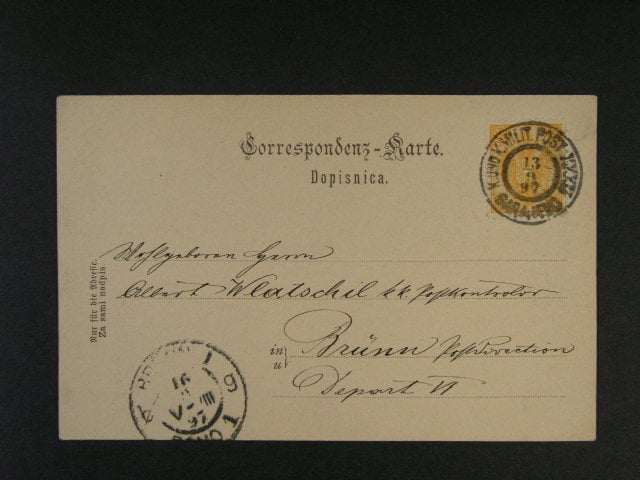 Correspondenz-Karte.
Dopisnica.
K. UND K. MILIT. POST XXXVII
13
97
SARAJEVO
Wohlgeboren Herrn
Albert Wlatschil k.k. Postkontrolor
in
u
Brünn Postdirection
Depart VI
Nur für die Adresse.
Za sami nadpis
BRÜNN 1
16
97
BRNO 1